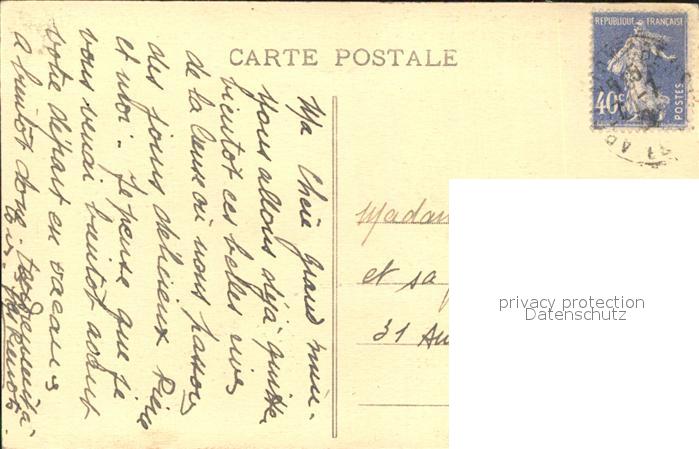 CARTE POSTALE
RÉPUBLIQUE FRANÇAISE
40c
POSTES
Ma Chère grand'mère.
Nous allons déjà quitter
bientôt ces belles rives
de la Creuse où nous passons
des jours délicieux
et moi - Je pense que je
vous verrai bientôt avant
votre départ en vacances
a bientôt donc tendrement à
Madam
et sa
31 Au
privacy protection
Datenschutz